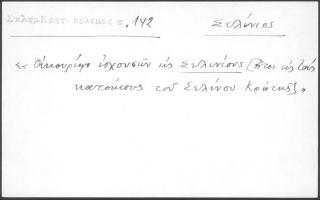 Σκληρ. Κρητ. πόλεμος σ. 142
Σελίνιος
«Οἰκουρίῃ ἰσχυουσῶν εἰς Σελινίους [ἤτοι εἰς τοὺς
κατοίκους τοῦ Σελίνου Κρήτης]»